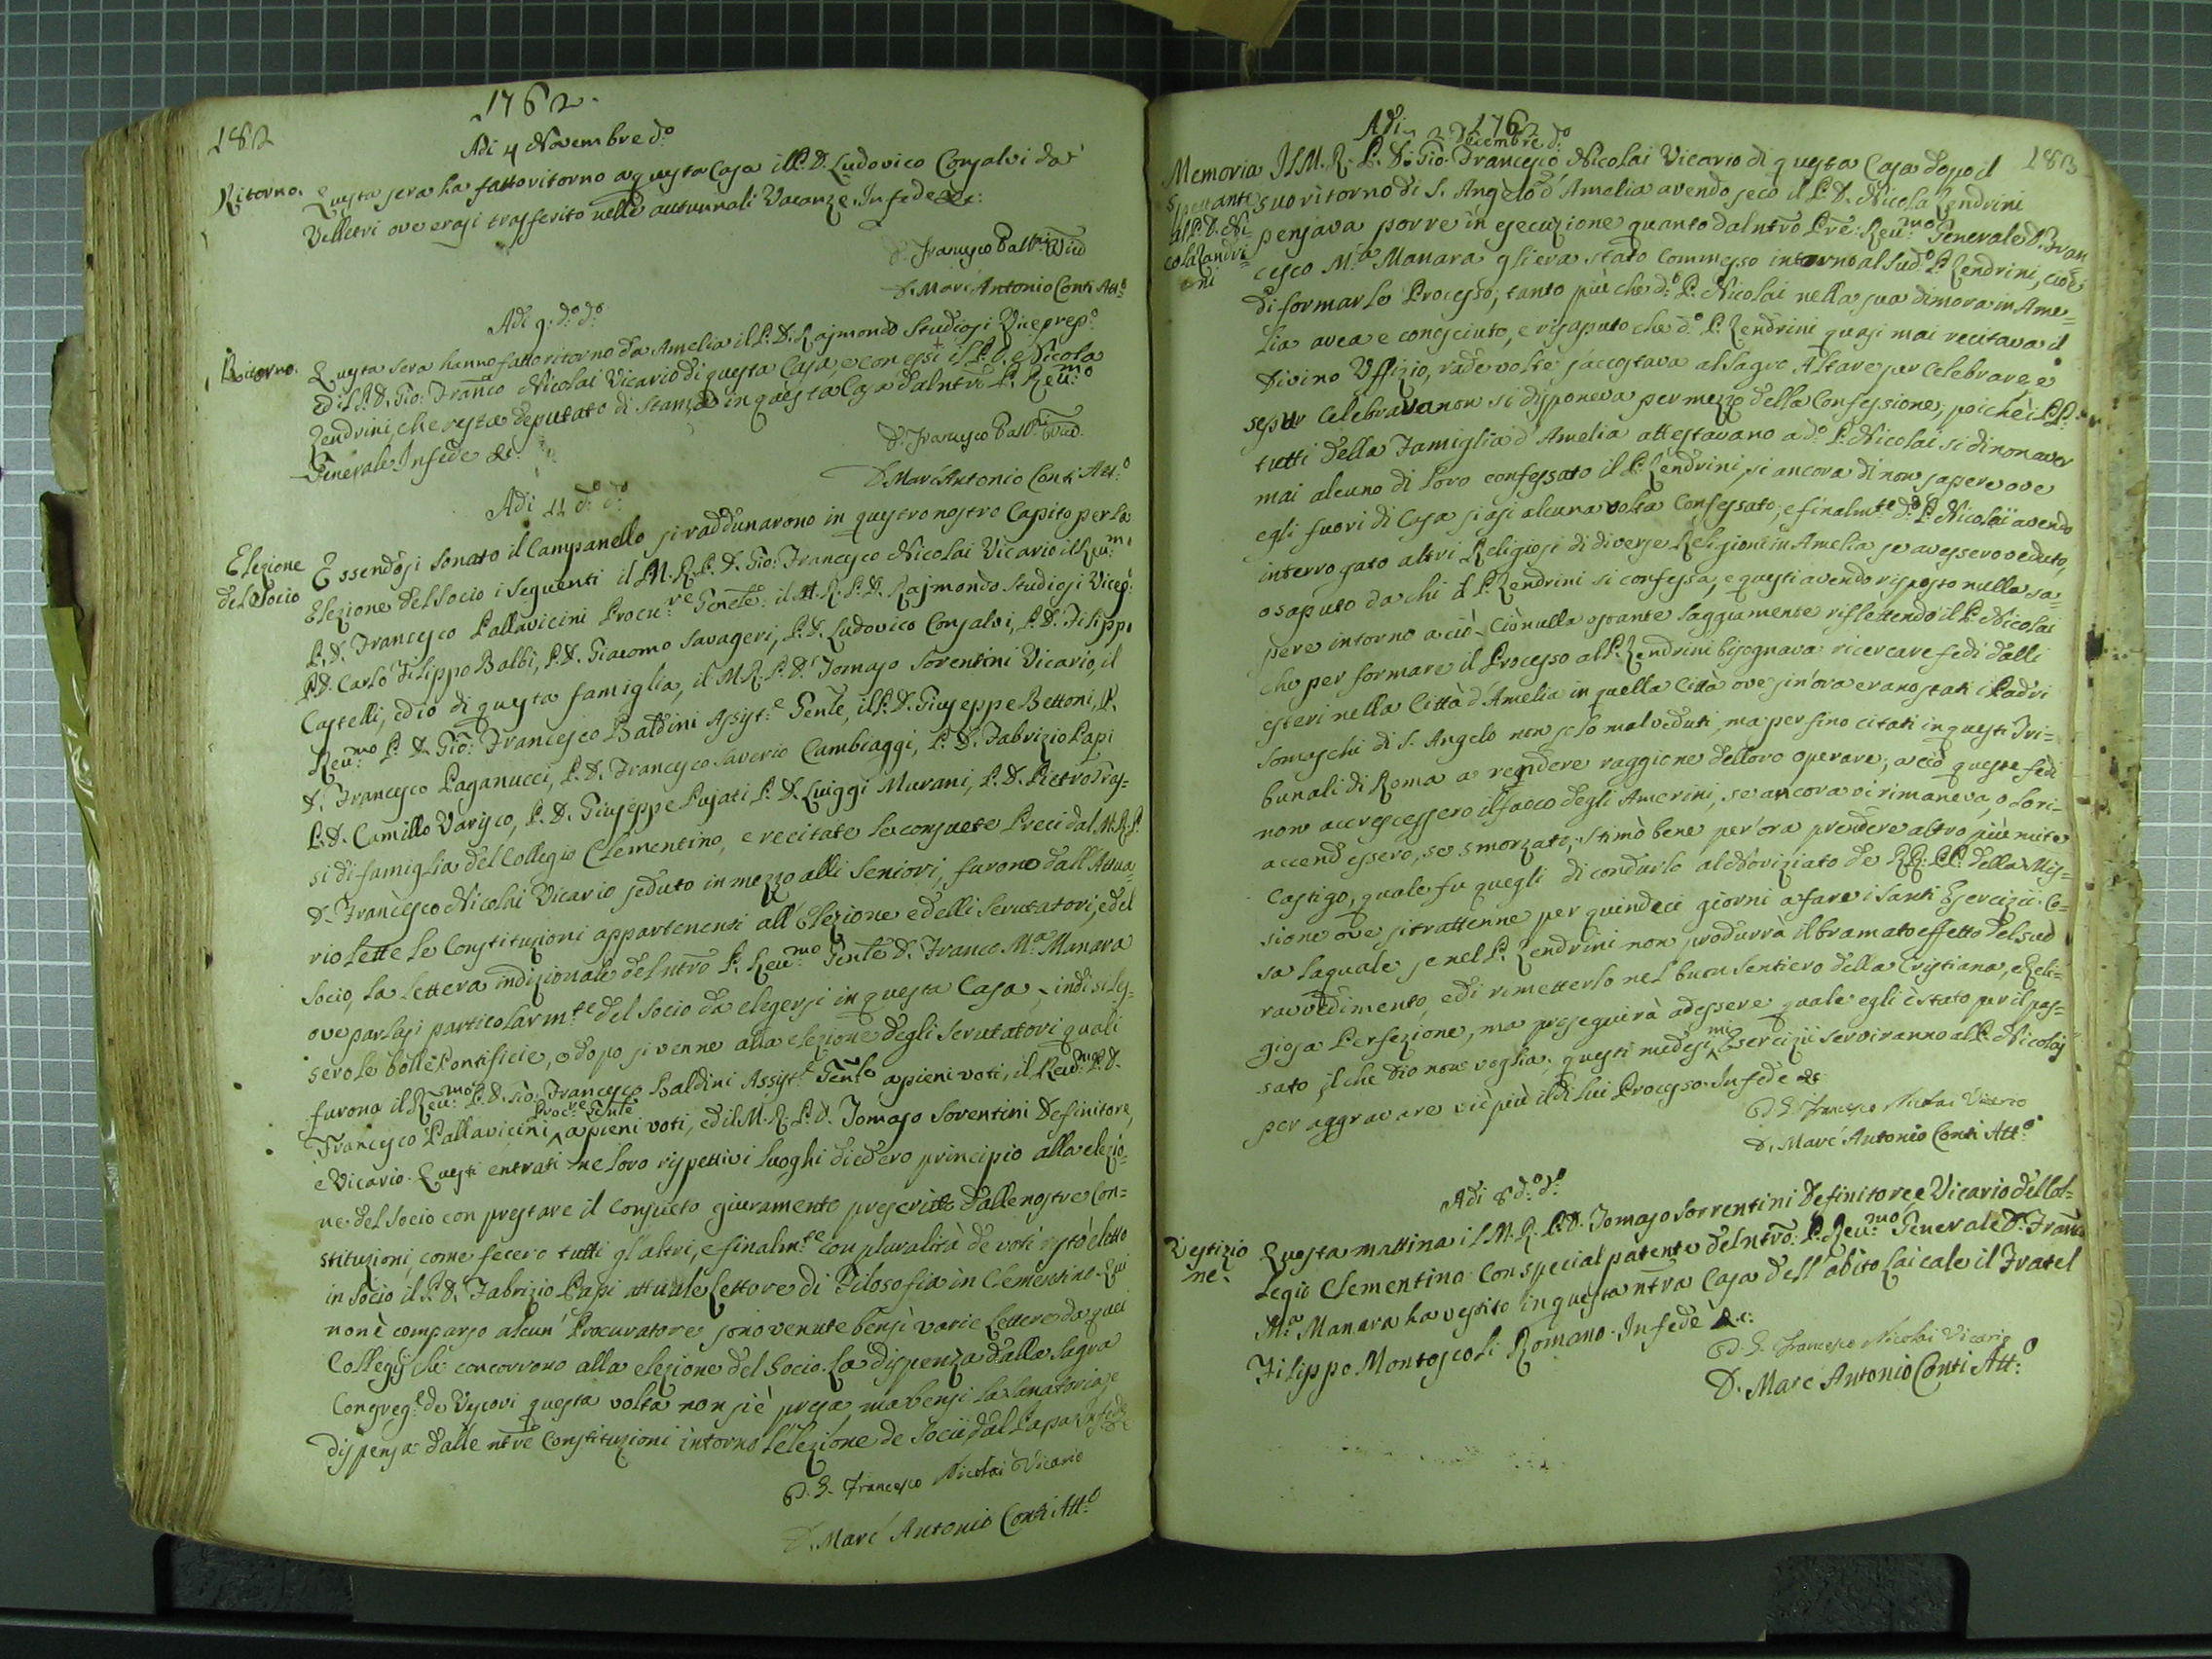 182
1762.
Adi 4 Novembre d:o
Ritorno. Questa sera ha fatto ritorno a questa Casa il P. D. Ludovico Consalvi da
Velletri ove erasi trasferito nelle autunnali Vacanze. In fede &c:
D. Francesco Pall:ni Vic.
D. Marc'Antonio Conti Att:o
Adi 9. d:o d:o
Ritorno. Questa sera hanno fatto ritorno da Amelia il P. D. Rajmondo Studiosi Viceprep:o
ed il P. D. Gio: Fran:co Nicolai Vicario di questa Casa, e con essi il P. D. Nicola
Zendrini, che resta deputato di stanza in questa Casa dal ntro P. Reu:mo
Generale. In fede &c:
D. Francesco Pall:ni Vic.
D. Marc'Antonio Conti Att:o
Adi 11 d:o d:o
Elezione
del Socio
Essendosi sonato il Campanello si raddunarono in questro nostro Capito per la
Elezione del Socio i seguenti il M. R. P. D. Gio: Francesco Nicolai Vicario il Reu:mo
P. D. Francesco Pallavicini Procu:re Genele: il M. R. P. D. Rajmondo Studiosi Vicep:
P. D. Carlo Filippo Balbi, P. D. Giacomo Savageri, P. D. Ludovico Consalvi, P. D. Filippo
Castelli, ed io di questa famiglia, il M. R. P. D. Tomaso Sorentini Vicario, il
Reu:mo P. D. Gio: Francesco Baldini Assist:e Genle, il P. D. Giuseppe Bettoni, P.
D. Francesco Paganucci, P. D. Francesco Saverio Cambiaggi, P. D. Fabrizio Papi
P. D. Camillo Varisco, P. D. Giuseppe Pujati P. D. Luiggi Murani, P. D. Pietro Tras=
si di famiglia del Collegio Clementino, e recitate le consuete Preci dal M. R. P.
D. Francesco Nicolai Vicario seduto in mezzo alli Seniori, furono dall'Attua=
rio lette le Constituzioni appartenenti all'Elezione e delli Scrutatori, e del
Socio, la lettera indizionale del ntro P. Reu:mo Genle D. Franco M:a Manara
ove parlasi particolarm:te del Socio da elegersi in questa Casa, indi si les=
sero le bolle Pontificie, e dopo si venne alla elezione degli Scrutatori quali
furono il Reu:mo P. D. Gio: Francesco Baldini Assist:e Genle a pieni voti, il Reu:mo P. D.
Francesco Pallavicini Proc:re Genle a pieni voti, ed il M. R. P. D. Tomaso Sorentini Definitore,
e Vicario. Questi entrati ne loro rispettivi luoghi diedero principio alla elezio=
ne del Socio con prestare il consueto giuramento prescritto dalle nostre Con=
stituzioni, come fecero tutti gl'altri, e finalm:te con pluralità de voti restò eletto
in Socio il P. D. Fabrizio Papi attuale Lettore di Filosofia in Clementino. Qui
non è comparso alcun Procuratore, sono venute bensì varie Lettere da quei
Collegij che concorrono alla elezione del Socio. La dispenza dalla Sagra
Congreg:e de Vescovi questa volta non si è presa, ma bensi la Sanatoria, e
dispensa dalle ntre Constituzioni intorno l'elezione de Socii dal Papa. In fede
P. D. Francesco Nicolai Vicario
D. Marc'Antonio Conti Att:o
1762
183
Adi 2 Decembre d:o
Memoria
spettante
al P. D. Ni=
cola Zandri=
ni
Il M. R. P. D. Gio: Francesco Nicolai Vicario di questa Casa dopo il
suo ritorno di S. Angelo d'Amelia avendo seco il P. D. Nicola Zendrini
pensava porre in esecuzione quanto dal ntro Pre: Reu:mo Generale D. Fran
cesco M:a Manara gli era stato commesso intorno al sud:o P. Zendrini, cioè
di formarle Processo, tanto più che d:o P. Nicolai nella sua dimora in Ame=
lia avea e conosciuto, e risaputo che d:o P. Zendrini quasi mai recitava il
Divino Uffizio, rade volte s'accostava al Sagro Altare per celebrare, e
se pur celebrava non si disponeva per mezzo della Confessione, poiche i PP.
tutti della Famiglia d'Amelia attestavano a d:o P. Nicolai si di non aver
mai alcuno di loro confessato il P. Zendrini, si ancora di non sapere ove
egli fuori di Casa siasi alcuna volta Confessato, e finalm:te d:o P. Nicolai avendo
interrogato altri Religiosi di diverse Religioni in Amelia se avessero veduto,
o saputo da chi il P. Zendrini si confessa, e questi avendo risposto nulla sa=
pere intorno a ciò. Ciò nulla ostante saggiamente riflettendo il P. Nicolai
che per formare il Processo al P. Zendrini bisognava ricercare fedi dalli
esteri nella Città d'Amelia in quella Città ove sin'ora erano stati i Padri
Somaschi di S. Angelo non solo mal veduti, ma per fino citati in questi Tri=
bunali di Roma a rendere raggione dell loro operare; a ciò queste fedi
non accrescessero il fuoco degli Amerini, se ancora vi rimaneva, o lo ri=
accendessero, se smorzato, stimò bene per ora prendere altro più mite
Castigo, quale fu quegli di condurlo al Noviziato de RR: PP: della Mis=
sione ove si trattenne per quindeci giorni a fare i Santi Esercizii. Co=
sa la quale se nel P. Zendrini non produrrà il bramato effetto del suo
ravvedimento, e di rimetterlo nel buon sentiero della Cristiana, e Reli=
giosa Perfezione, ma proseguirà ad essere quale egli è stato per il pas=
sato, il che Dio non voglia; questi medesimi Esercizii serviranno al P. Nicolaj
per aggravare viè più il di lui Processo. In fede &c
P. D. Francesco Nicolai Vicario
D. Marc'Antonio Conti Att:o
Adi 8 d:o d:o
Vestizio
ne.
Questa mattina il M. R. P. D. Tomaso Sorrentini Definitore e Vicario del Col=
legio Clementino con special patente del ntro: P. Reu:mo Generale D. Franco
M:a Manara ha vestito in questa ntra Casa dell'abito laicale il Fratel
Filippo Montoscoli Romano. In fede &c:
P. D. Francesco Nicolai Vicario
D. Marc Antonio Conti Att:o